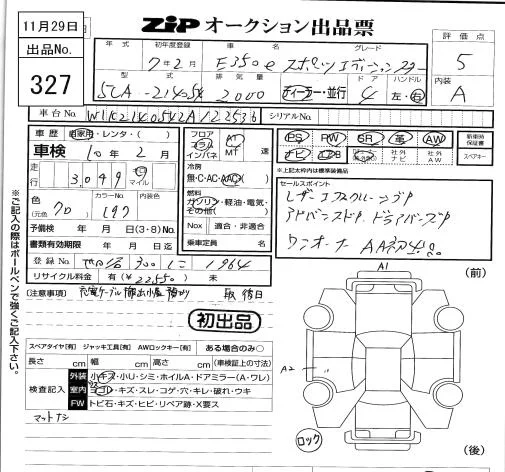 11月29日
ZIP オークション出品票
出品No.
327
年式 初年度登録 車名 グレード
7年2月 E350e スポーツエディションスター
評価点
5
型式 排気量 ドア ハンドル
5LA-214054 2000 ディーラー・並行 4 左・右
内装
A
車台No. W1K2140542A122536 シリアルNo.
車歴 自家用・レンタ・( )
車検 10年2月
走行 3,049 km マイル
フロア フラット インパネ
AT MT 速
冷房
無・C・AC・AAC
燃料
ガソリン・軽油・電気・その他( )
Nox 適合・非適合
乗車定員 名
PS PW SR 革 AW
ナビ TV エアB 社外ナビ 社外AW
新車時保証書
スペアキー
*上記太枠内は標準装備品
セールスポイント
レザーエクスクルーシブP
アドバンスドP ドライバーズP
ワンオーナー
色 (元色 クロ ) カラーNo. 197 内装色
予備検 年 月 日(3・8)No.
書類有効期限 年 月 日迄
登録No. 世田谷 300 に 1964
リサイクル料金 有(¥22550) 未
[注意事項] 充電ケーブル 取 後日
初出品
スペアタイヤ[有] ジャッキ工具[有] AWロックキー[有] ある場合のみ○
長さ cm 幅 cm 高さ cm (車検証上の寸法)
検査記入
外装 小キズ・小U・シミ・ホイルA・ドアミラー(A・ワレ)
室内 ヨゴレ・キズ・スレ・コゲ・穴・キレ・破れ・ウキ
FW トビ石・キズ・ヒビ・リペア跡・X要ス
マットナシ
※ご記入の際はボールペンで強くご記入下さい。
A1
(前)
A2
ロック
(後)